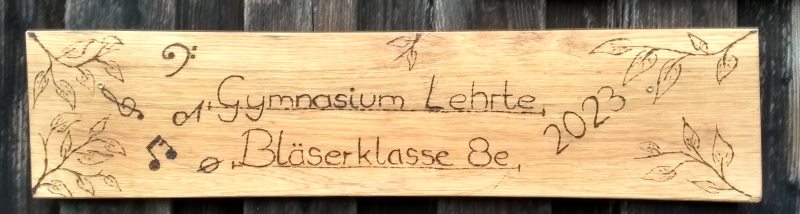 Gymnasium Lehrte
Bläserklasse 8e
2023